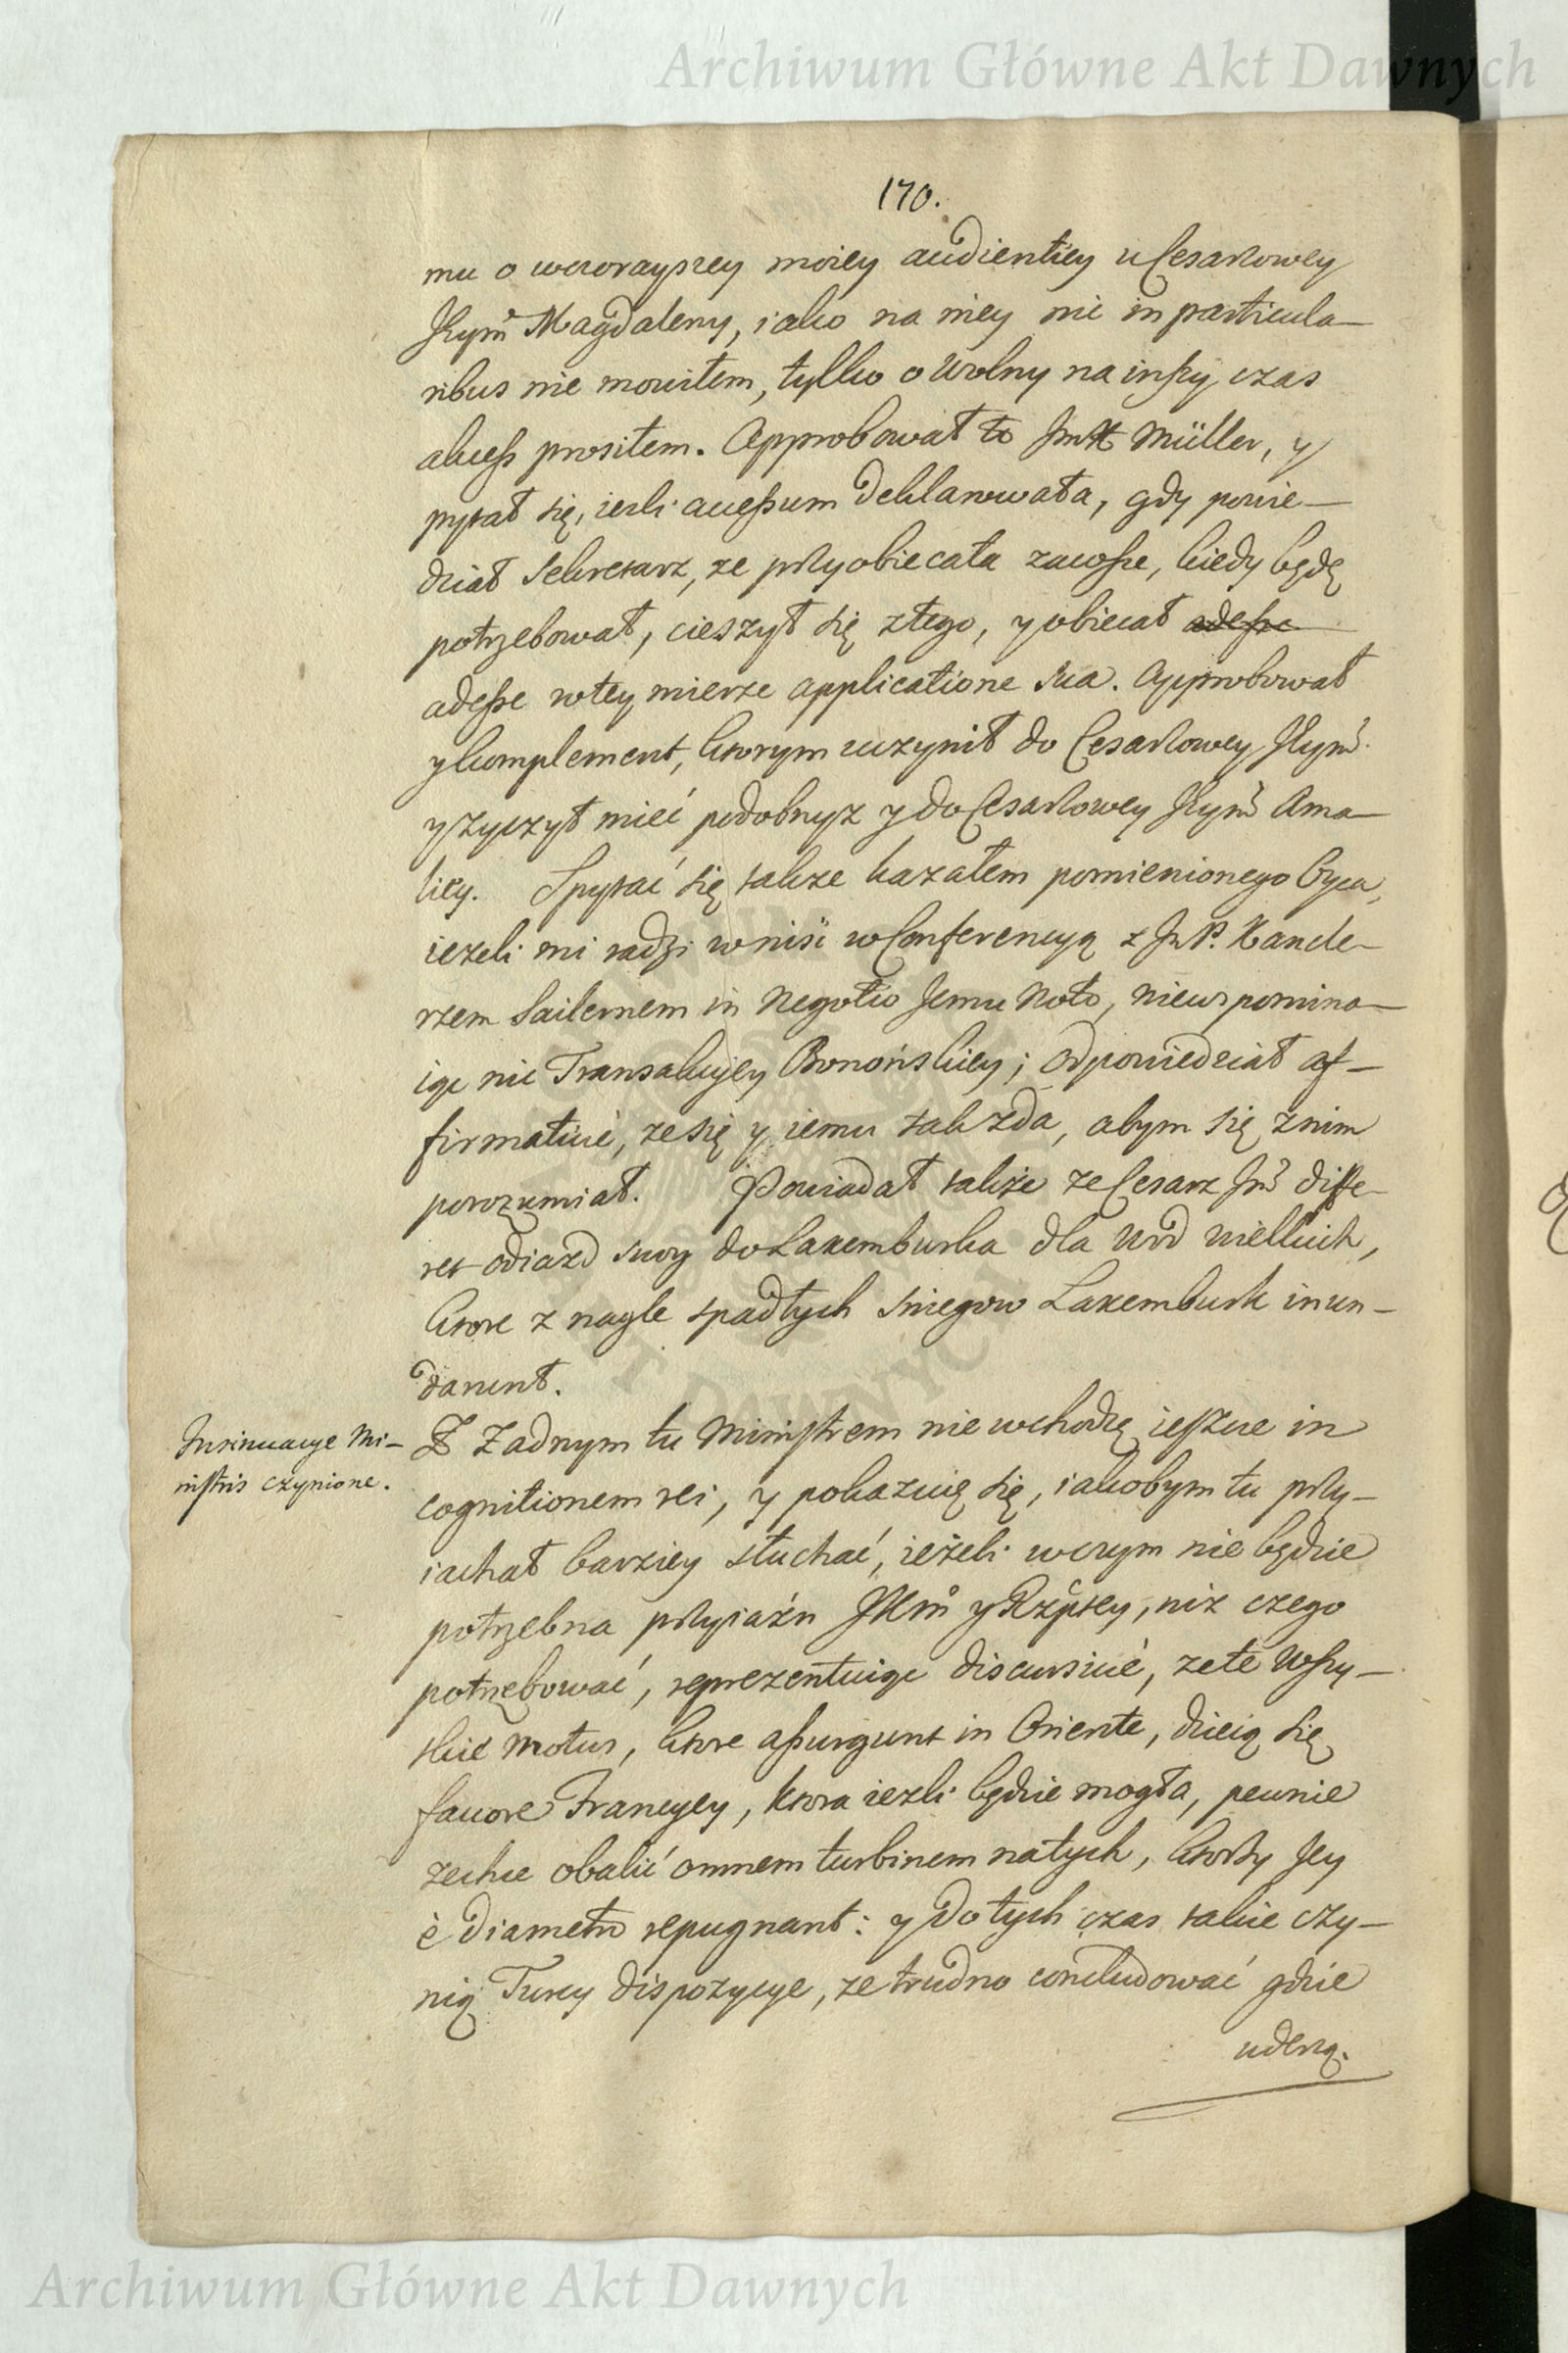 Archiwum Główne Akt Dawnych
170.
mu o wczorayszey moiey audientiey u Cesarzowey
JKeym̃ Magdaleny, iako na niey nic in particula–
ribus nie mowiłem, tylko o wolny na inszy czas
akcess prosiłem. Approbował to JmX Müller, y
pytał się, iezli accessum deklarowała, gdy powie–
dział Sekretarz, ze przyobiecała zawsze, kiedy będę
potrzebował, cieszył się z tego, y obiecał adesse
adesse w tey mierze applicatione sua. Approbował
y komplement, ktorym uczynił do Cesarzowey JKeym̃
y zyczył mieć podobnyz y do Cesarzowey JKeym̃ Ama–
liey. Spytać się takze kazałem pomienionego Oyca,
iezeli mi radzi wniść w Conferencyą z JmP. Kancle–
rzem Seilernem in Negotio Jemu Noto, niewspomina–
iąc nic Transakcyey Bonońskiey; odpowiedział af–
firmativè, ze się y iemu tak zda, abym się z nim
porozumiał. Powiadał także ze Cesarz Jm̃ diffe–
ret odiazd swoy do Laxemburka dla wod wielkich,
ktore z nagle spadłych sniegow Laxemburk inun–
darunt.
Insinuacye Mi–
nistris czynione.
Z Zadnym tu Ministrem nie wchodzę ieszcze in
cognitionem rei, y pokazuię się, iakobym tu przy–
iachał barziey słuchać, ieżeli w czym nie będzie
potrzebna przyiaźń JKm̃ y Rzpltey, niz czego
potrzebować, reprezentuiąc discursivè, ze te wszy–
stkie motus, ktore assurgunt in Oriente, dzieią się
favore Francyey, ktora iezli będzie mogła, pewnie
zechce obalić omnem turbinem na tych, ktorzy Jey
è diametro repugnant: y do tych czas takie czy–
nią Turcy dispozycye, ze trudno concludować gdzie
uderzą.
Archiwum Główne Akt Dawnych